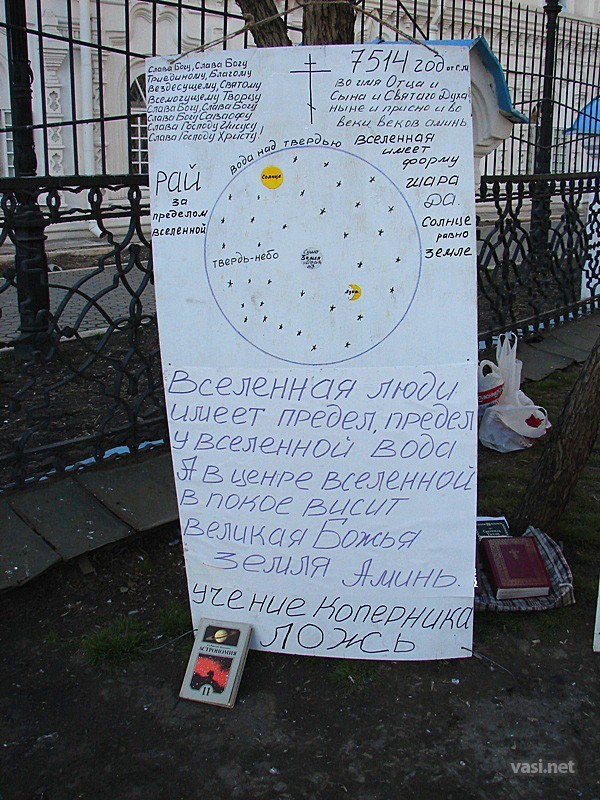 Слава Богу, Слава Богу
Триединому, Благому
Вездесущему, Святому
Всемогущему Творцу
Слава Богу, Слава Богу
Слава Богу Саваофу
Слава Господу Иисусу
Слава Господу Христу!
7514 год от С.М
Во имя Отца и
Сына и Святаго Духа.
ныне и присно и во
веки веков аминь
Вода над твердью
Вселенная
имеет
форму
шара
да.
Солнце
равно
Земле
Рай
за
пределом
вселенной
Солнце
твердь-небо
Земля
Луна
Вселенная люди
имеет предел, предел
у вселенной вода
А в ценре вселенной
в покое висит
великая Божья
Земля Аминь.
учение Коперника
ложь
АСТРОНОМИЯ
11
vasi.net